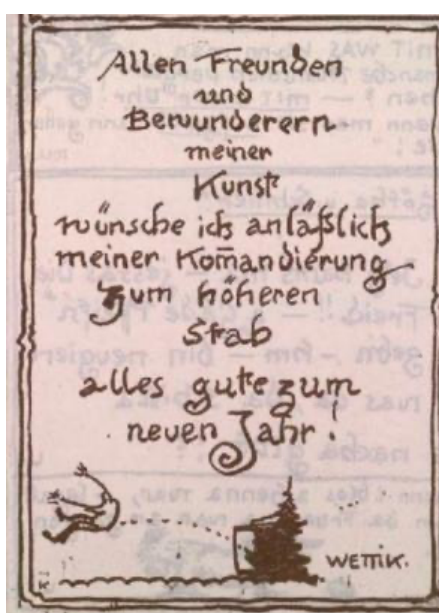 Allen Freunden
und
Bewunderern
meiner
Kunst
wünsche ich anläßlich
meiner Kom̄andierung
zum höheren
Stab
alles gute zum
neuen Jahr!
WETTIK.